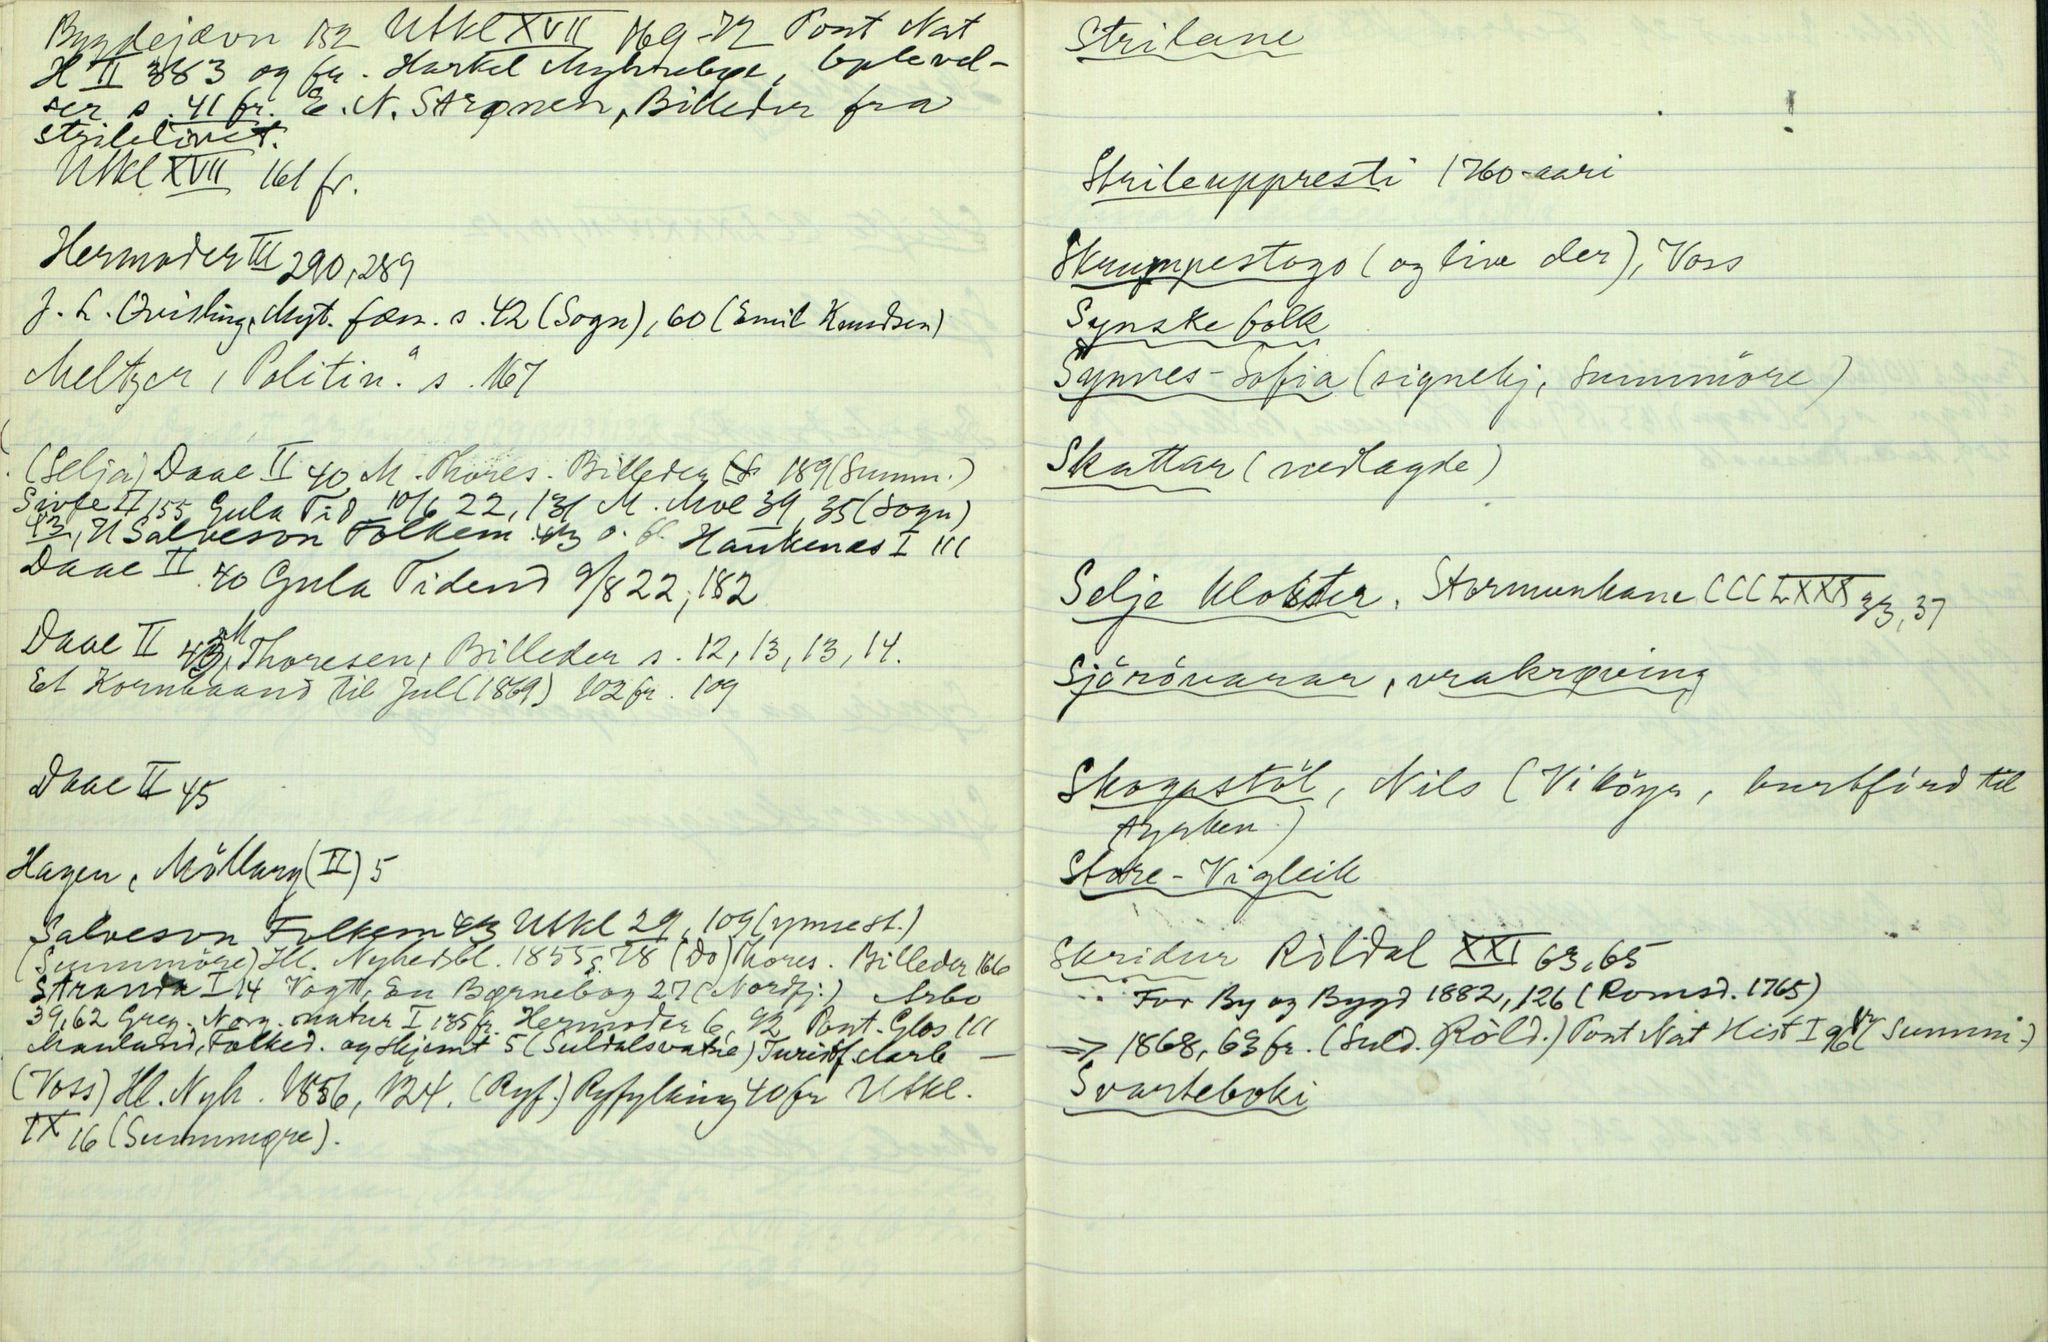 Bygdejævn 152 Utkl XVII 169-72 Pont Nat
H II 383 og fr. Harkel Myhrebøe, Oplevel-
ser s. 41 fr. E. N. Strømen, Billeder fra
strilelivet.
Utkl XVII 161 fr.
Hermoder III 290, 289
J. L. Qvisling, Myt. fæn. s. 42 (Sogn), 60 (Emil Knudsen)
Meltzer, Politin. s. 167
(Selja) Daae II 40 M. Thores. Billeder 189 (Summ.)
Sivle II 155 Gula Tid 10/6 22, 131 M. Moe 39, 35 (Sogn)
43, N Salveson Folkem. 43 o. fl. Haukenæs I 111
Daae II 40 Gula Tidend 9/8 22, 182
Daae II 43, M Thoresen, Billeder s. 12, 13, 13, 14.
Et Kornbaand til Jul (1869) 102 fr. 109
Daae II 45
Hagen, Möllarg (II) 5
Salveson Folkem 43 Utkl 29, 109 (ymse st.)
(Summöre) Ill. Nyhedsbl. 1855 s. 78 (Do) Thores. Billeder 166
Stranda I 14 Vogt, En Børnebog 27 (Nordfj.) Arbo
39, 62 Greg. Norg. natur I 185 fr. Hermoder 6, 92 Pont. Glos 111
Mauland, Folked. og Skjemt 5 (Suldalsvatne) Turistf. Aarb -
(Voss) Ill. Nyh. 1856, 124. (Ryf.) Ryfylking 40 fr Utkl.
IX 16 (Summøre).
Strilane
Strileuppresti 1760-aari
Skrumpestogo (og live der), Voss
Synske folk
Synnes-Sofia (signekj, Summöre)
Skattar (nedlagde)
Selje kloster. Stormunkane CCCLXXX 33, 37
Sjörövarar, vrakrøving
Skogastöl, Nils (Viköyr, burtförd til
Tyrken.)
Store-Vigleik
Skridur Röldal XXI 63, 65
For By og Bygd 1882, 126 (Romsd. 1765)
→ 1868, 63 fr. (Suld. Röld.) Pont Nat Hist I 96 fr (Summ.)
Svarteboki